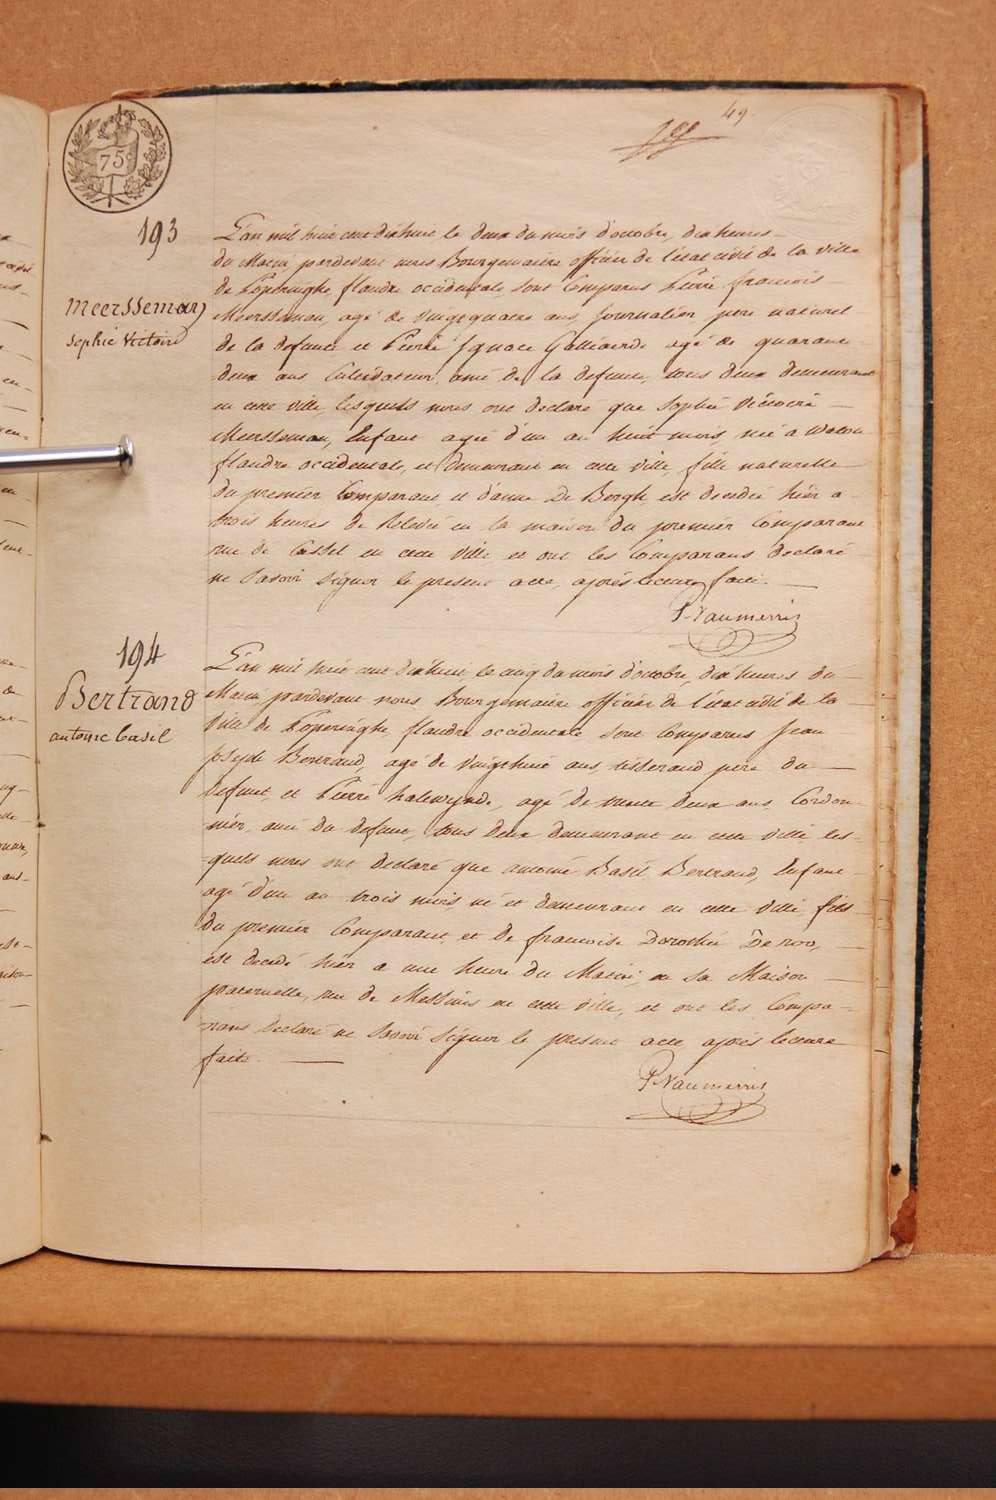 49
75
193
Meersseman
Sophie Victoire
L'an mil huit cent dixhuit le deux du mois d'octobre, dix heures
du Matin pardevant nous Bourgemaitre officier de l'état civil de la ville
de Poperinghe, flandre occidentale, sont Comparus Pierre francois
Meersseman, agé de vingtquatre ans, Journalier pere naturel
de la defunte et Pierre Ignace Galliaerde agé de quarante
deux ans Cultivateur, ami de la defunte, tous deux demeurant
en cette ville, lesquels nous ont declaré que Sophie Victoire
Meersseman, Enfant agée d'un an huit mois, née a Watou
flandre occidentale, et demeurant en cette ville, fille naturelle
du premier Comparant, et d'anne De Bergh, est decedée hier a
trois heures de Relevée en la maison du premier Comparant
rue de Cassel en cette ville, et ont les Comparans declaré
ne Savoir Signer le present acte, après lecture faite.
P. Vanmerris
194
Bertrand
antoine basil
L'an mil huit cent dixhuit, le cinq du mois d'octobre, dix heures du
Matin, pardevant nous Bourgemaitre officier de l'état civil de la
Ville de Poperinghe, flandre occidentale sont Comparus Jean
joseph Bertrand, agé de vingthuit ans, tisserand pere du
defunt, et Pierre halewynde, agé de trente deux ans Cordon
nier, ami du defunt, tous deux demeurant en cette ville, les-
quels nous ont declaré que antoine Basil Bertrand, Enfant
agé d'un an trois mois né et demeurant en cette ville, fils
du premier Comparant, et de francoise Dorothée De roo,
est decedé hier a une heure du Matin, en sa Maison
paternelle, rue de Messines en cette ville, et ont les Compa-
rans declaré ne Savoir Signer le present acte après lecture
faite.
P. Vanmerris